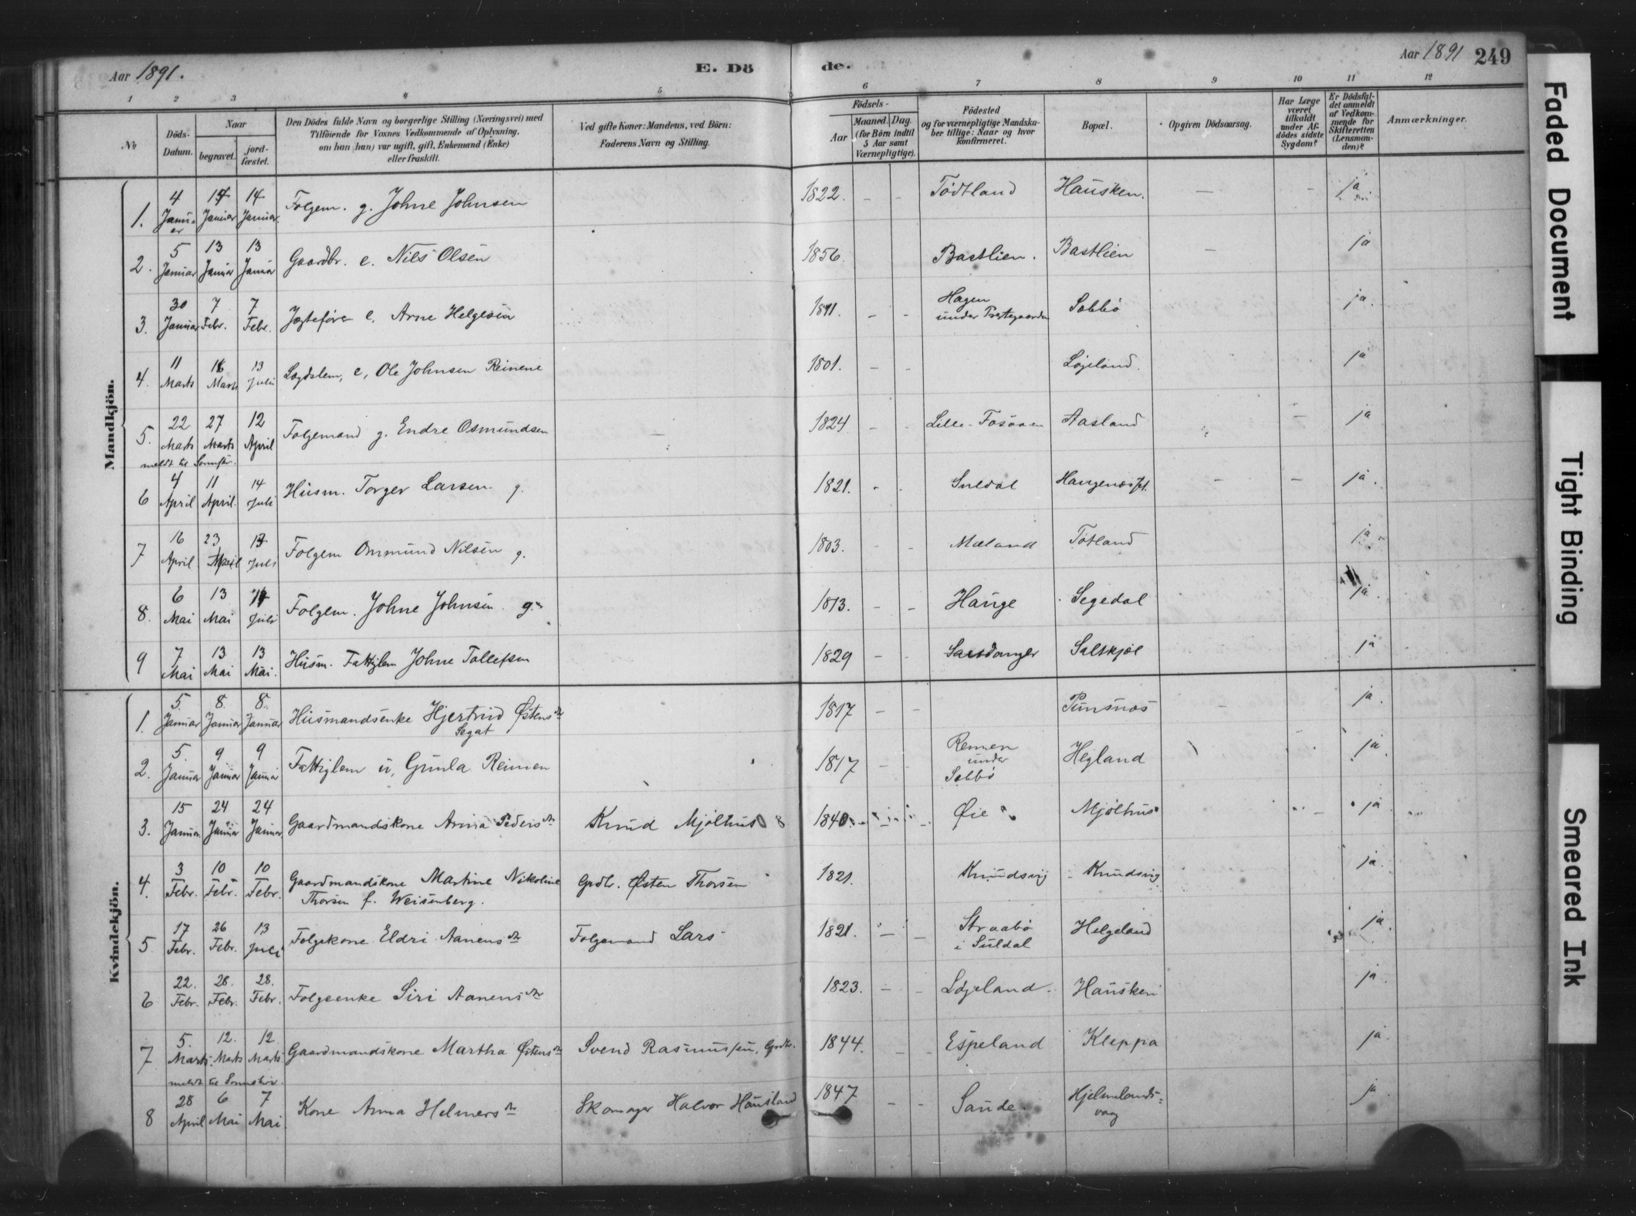 Aar 1891. E. Dö de. Aar 1891 249
1 2 3 4 5 6 7 8 9 10 11 12
No
Döds-Datum.
Naar
begravet.
jord-fæstet.
Den Dödes fulde Navn og borgerlige Stilling (Næringsvei) med
Tilföiende for Voxnes Vedkommende af Oplysning,
om han (hun) var ugift, gift, Enkemand (Enke)
eller fraskilt.
Ved gifte Koner: Mandens, ved Börn:
Faderens Navn og Stilling.
Födsels-
Aar
Maaned. Dag.
(for Börn indtil
5 Aar samt
Værnepligtige).
Födested
og for værnepligtige Mandska-
ber tillige: Naar og hvor
konfirmeret.
Bopæl.
Opgiven Dödsaarsag.
Har Læge
været
tilkaldt
under Af-
dödes sidste
Sygdom?
Er Dödsfal-
det anmeldt
af Vedkom-
mende for
Skifteretten
(Lensman-
den)?
Anmærkninger.
Mandkjön.
1. 4 Januar 14 Januar 14 Januar Folgem. g. Johne Johnsen 1822 - - Tödtland Hausken. - - ja
2. 5 Januar 13 Januar 13 Januar Gaardbr. e. Nils Olsen 1856 Bastlien. Bastlien - ja
3. 30 Januar 7 Febr. 7 Febr. Jægtefører e. Arne Helgesen - - Hagen under Præstegaarden Sobbö ja.
4. 11 Marts Marts 13 Juli Lægdslem, e, Ole Johnsen Reinene 1801. - - Löjeland. ja
5. 22 Marts 27 Marts 12 April Folgemand g. Endre Osmundsen - 1824 - - Aasland - ja
meldt til
6 4 April 11 April. 14 Juli Husm. Torger Larsen g. 1821. - - Suldal - - ja.
7 16 April 23 April Juli Folgem Ommund Nilsen g. 1803. - - Mæland Totland ja
8. 6 Mai 13 Mai Juli Folgem. Johne Johnsen g. 1813. - - Hauge Segedal ja.
9 7 Mai 13 Mai 13 Mai. Husm. Fattiglem Johne Tollefsen 1829 - - Saltskjöl ja
Kvindekjön.
1. 5. Januar 8. Januar 8. Januar Husmandsenke Hjertrud Östensdr Segat 1817 - - ja.
2. 5. Januar 9 Januar 9 Januar Fattiglem u, Gunla Reimen 1817 - Remen under Selbö Hegland ja
3. 15 Januar 24 Januar 24 Januar Gaardmandskone Anna Pedersdr Knud Mjölhus 1840 Öie Mjölhus ja
4. 3 Febr. 10 Febr. 10 Febr. Gaardmandskone Martine Nikoline Thorsen f. Weisenberg. Grdbr. Östen Thorsen 1821. Knudsvig Knudsvig ja
5 17 Febr. 26 Febr. 13 Juli Folgekone Eldri Aanensdr Folgemand Lars 1821. - - Straabö i Suldal Helgeland ja.
6 22. Febr. 28. Febr. 28. Febr. Folgeenke Siri Aanensdr 1823. - - Löjeland. Hausken ja
7 5. Marts 12. Marts 12 Marts Gaardmandskone Martha Östensdr Svend Rasmussen, Grdbr. 1844. - - Espeland Kleppa ja.
meldt til
8 28 April 6 Mai 7 Mai Kone Anna Helmersdr Skomager Halvor Hausland 1847 - - Sande. Hjelmelands-vaag ja
Faded Document
Tight Binding
Smeared Ink